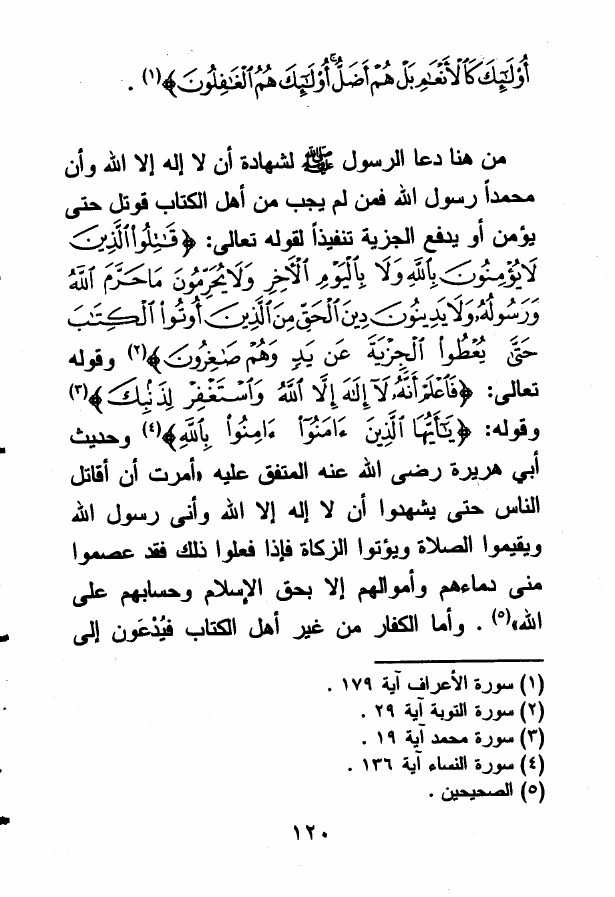 أُوْلَٰٓئِكَ كَٱلْأَنْعَٰمِ بَلْ هُمْ أَضَلُّ ۚ أُوْلَٰٓئِكَ هُمُ ٱلْغَٰفِلُونَ﴾(١) .
من هنا دعا الرسول ﷺ لشهادة أن لا إله إلا الله وأن
محمداً رسول الله فمن لم يجب من أهل الكتاب قوتل حتى
يؤمن أو يدفع الجزية تنفيذاً لقوله تعالى: ﴿قَٰتِلُوا۟ ٱلَّذِينَ
لَا يُؤْمِنُونَ بِٱللَّهِ وَلَا بِٱلْيَوْمِ ٱلْأٓخِرِ وَلَا يُحَرِّمُونَ مَا حَرَّمَ ٱللَّهُ
وَرَسُولُهُۥ وَلَا يَدِينُونَ دِينَ ٱلْحَقِّ مِنَ ٱلَّذِينَ أُوتُوا۟ ٱلْكِتَٰبَ
حَتَّىٰ يُعْطُوا۟ ٱلْجِزْيَةَ عَن يَدٍ وَهُمْ صَٰغِرُونَ﴾(٢) وقوله
تعالى: ﴿فَٱعْلَمْ أَنَّهُۥ لَآ إِلَٰهَ إِلَّا ٱللَّهُ وَٱسْتَغْفِرْ لِذَنۢبِكَ﴾(٣)
وقوله: ﴿يَٰٓأَيُّهَا ٱلَّذِينَ ءَامَنُوٓا۟ ءَامِنُوا۟ بِٱللَّهِ﴾(٤) وحديث
أبي هريرة رضى الله عنه المتفق عليه «أمرت أن أقاتل
الناس حتى يشهدوا أن لا إله إلا الله وأنى رسول الله
ويقيموا الصلاة ويؤتوا الزكاة فإذا فعلوا ذلك فقد عصموا
منى دماءهم وأموالهم إلا بحق الإسلام وحسابهم على
الله»(٥) . وأما الكفار من غير أهل الكتاب فيُدْعَون إلى
(١) سورة الأعراف آية ١٧٩ .
(٢) سورة التوبة آية ٢٩ .
(٣) سورة محمد آية ١٩ .
(٤) سورة النساء آية ١٣٦ .
(٥) الصحيحين .
١٢٠